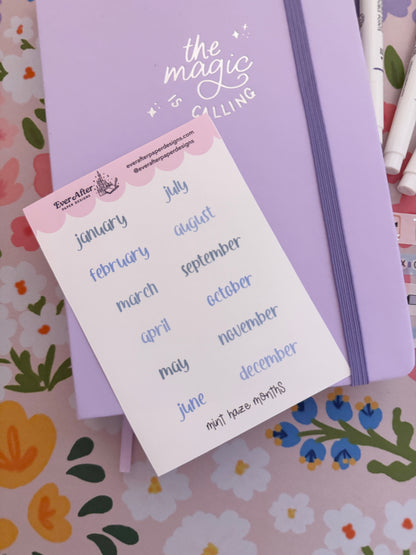 the
magic
IS
CALLING
Ever After
PAPER DESIGNS
everafterpaperdesigns.com
@everafterpaperdesigns
january
february
march
april
may
june
july
august
september
october
november
december
mint haze months